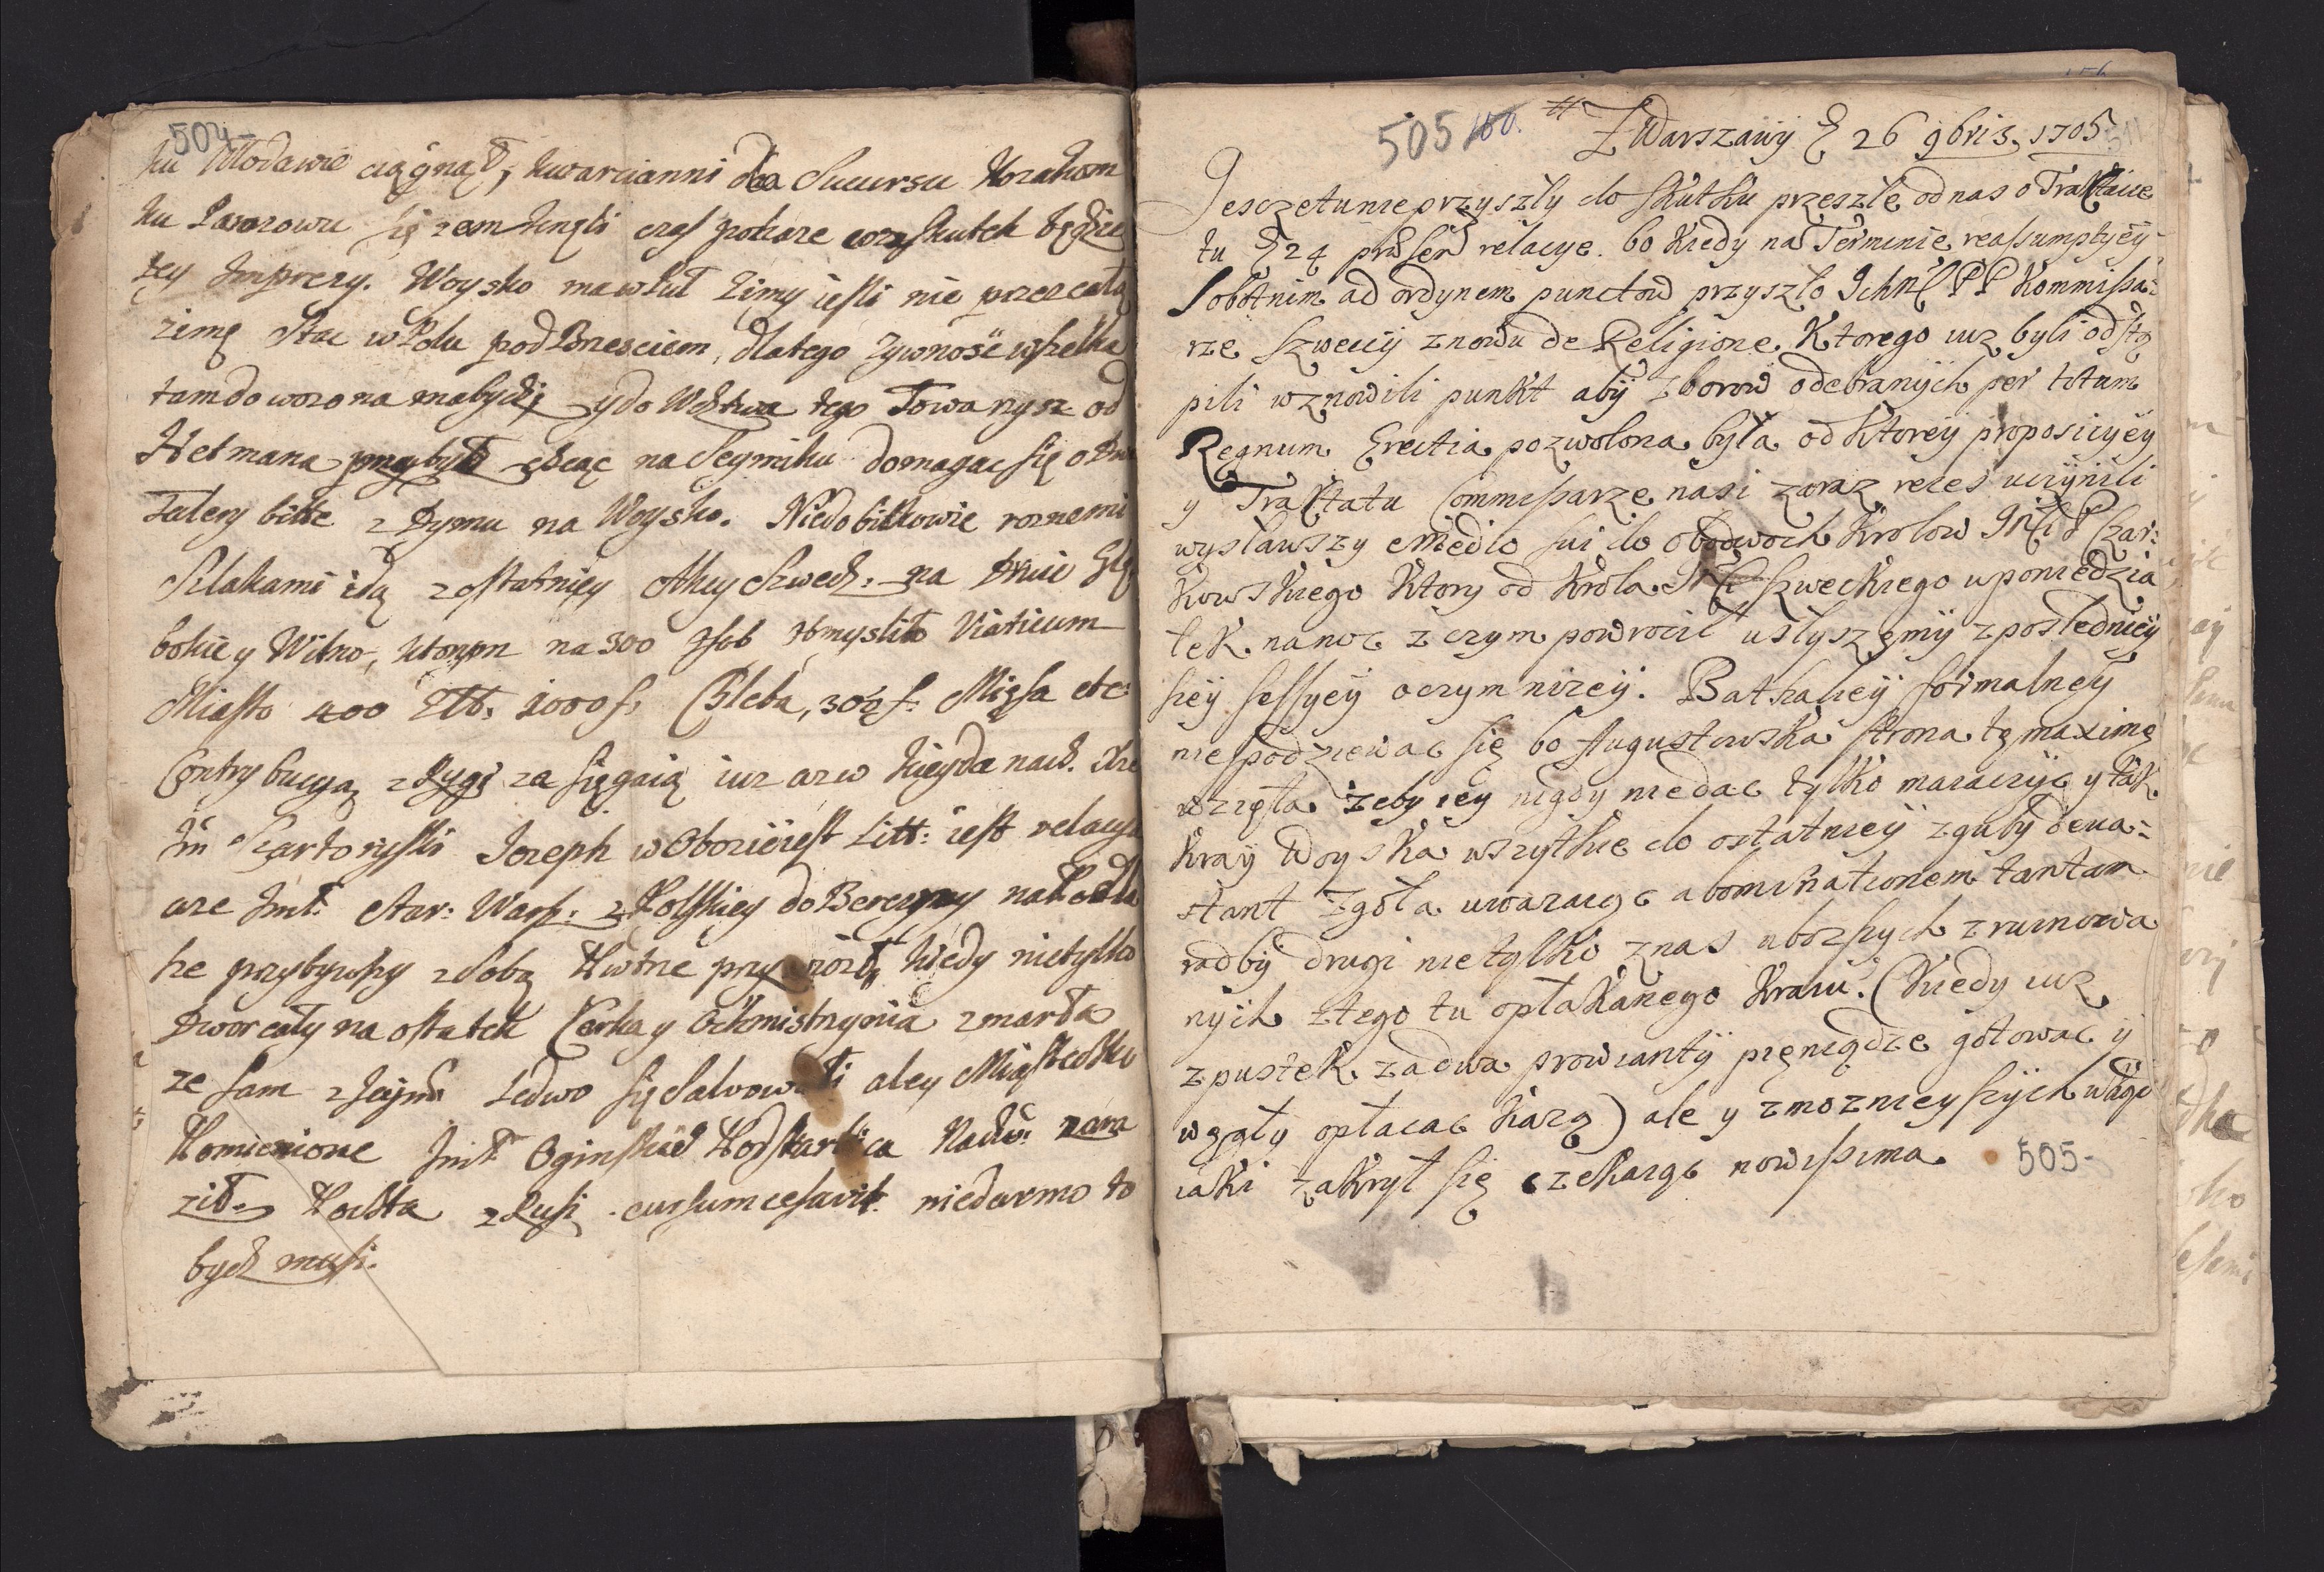 504-
ku Włodawie ciągnął, kwarcianni dla Succursu Kozakom
ku Jaworowu się zemknęli czas pokaże co za skutek będzie
tey Imprezy. Woysko ma w puł Zimy iesli nie przez całą
zimę stac w Polu pod Brzesciem, dlatego zywność wszelka
tam dowozona ma bydź y do Wdztwa tego Towarzysz od
Hetmana przybył chcąc na Seymiku domagac się o dwa
Talery bitte z Dymu na Woysko. Niedobitkowie roznemi
Szlakami idą z ostatniey Akcy Szwedz. na Drui Głę
bokie y Wilno, ktorym na 300 Osob obmysliło Viaticum
Miasto 400 Tlb. 1000 f. Chleba, 300 f. Mięsa etc:
Contrybucyą z Rygi zasięgaią iuz az w Kieyda nach. Xże
Im Czartoryski Jozeph w Obozie iest Litt: iest relacya
aze Imć Star: Warsz: z Polskiey do Berezyny
ke przybywszy z sobą kiedy nie tylko
Dwor cały na ostatek Corka y Ochmistrzynia zmarła
ze sam z Jeymć Ledwo się salwowali ale y Miasteczko
Pomienione Imć Oginskie Podskarbica Nadw: zara
ził. Poczta z Rusi cursum cesavit. niedarmo to
bydz musi.
505 100. # Z Warszawy D 26 9bris 1705
Jescze tu nie przyszly do skutku przeszłe od nas o Traktacie
tu D 24 relacye. bo kiedy na Terminie reassumptyey
Sobotnim ad ordynem punctow przyszło Ichmć PP Kommissa:
rze Szweccy znowu de Religione. Ktorego iuz byli odstą
pili wznowili punkt aby Zborow odebranych per totum
Regnum Erectia pozwolona była od ktorey proposicyey
y Traktatu Commissarze nasi zaraz reces uczynili
wysławszy e medio sui do obodwoch Krolow Jmći P Czar:
kowskiego ktory od Krola Jmći Szweckiego w poniedzia
łek na noc z czym powrocił usłyszemy z posledniey
szey sessyey o czym nizey. Bathaliey formalney
nie spodziewac się bo Augustowska strona tę maximę
wzięła zeby iey nigdy nie dac tylko maiaczyc y tak
kray Woyska wszytkie do ostatniey zguby deua:
stant zgoła uwazaiąc abominationem tantam
radby drugi nie tylko z nas ubozszych zruinowa
nych z tego tu opłakanego kraiu. (Kiedy iuz
z pustek za dwa prowianty pieniądze gotowac y
węgły opłacac kazą) ale y zmoznieyszych w iaki
iaki zakryt się czekaiąc nowissima.
505-